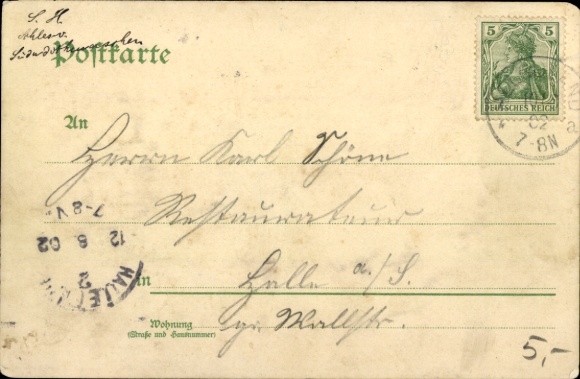 S. H.
Postkarte
5 5
DEUTSCHES REICH
02
7-8N
An
Herrn Karl Schöne
Restaurateur
in Halle a/S.
Wohnung
(Straße und Hausnummer)
gr. Wallstr.
HALLE
2
12 8 02
7-8V
5,-